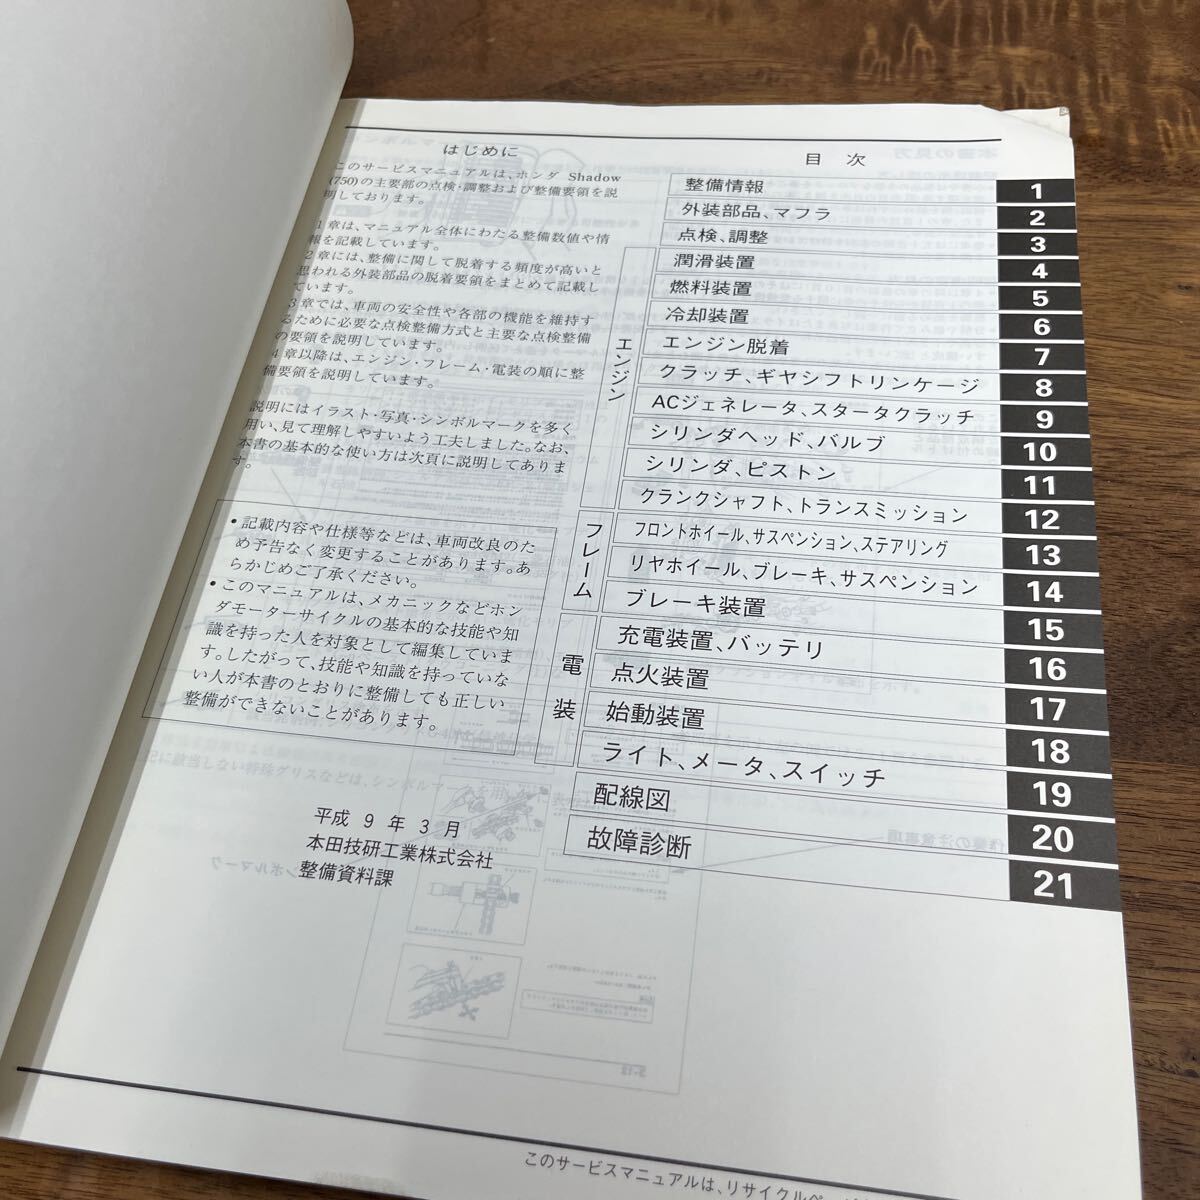 はじめに
このサービスマニュアルは、ホンダ Shadow
(750)の主要部の点検・調整および整備要領を説
明しております。
1章は、マニュアル全体にわたる整備数値や情
報を記載しています。
2章には、整備に関して脱着する頻度が高いと
思われる外装部品の脱着要領をまとめて記載し
ています。
3章では、車両の安全性や各部の機能を維持す
るために必要な点検整備方式と主要な点検整備
の要領を説明しています。
4章以降は、エンジン・フレーム・電装の順に整
備要領を説明しています。
説明にはイラスト・写真・シンボルマークを多く
用い、見て理解しやすいよう工夫しました。なお、
本書の基本的な使い方は次頁に説明してありま
す。
• 記載内容や仕様等などは、車両改良のた
め予告なく変更することがあります。あ
らかじめご了承ください。
• このマニュアルは、メカニックなどホン
ダモーターサイクルの基本的な技能や知
識を持った人を対象として編集していま
す。したがって、技能や知識を持っていな
い人が本書のとおりに整備しても正しい
整備ができないことがあります。
平成 9 年 3 月
本田技研工業株式会社
整備資料課
目 次
整備情報 1
外装部品、マフラ 2
点検、調整 3
エンジン
潤滑装置 4
燃料装置 5
冷却装置 6
エンジン脱着 7
クラッチ、ギヤシフトリンケージ 8
ACジェネレータ、スタータクラッチ 9
シリンダヘッド、バルブ 10
シリンダ、ピストン 11
クランクシャフト、トランスミッション 12
フレーム
フロントホイール、サスペンション、ステアリング 13
リヤホイール、ブレーキ、サスペンション 14
ブレーキ装置 15
電装
充電装置、バッテリ 16
点火装置 17
始動装置 18
ライト、メータ、スイッチ 19
配線図 20
故障診断 21
このサービスマニュアルは、リサイクルペ